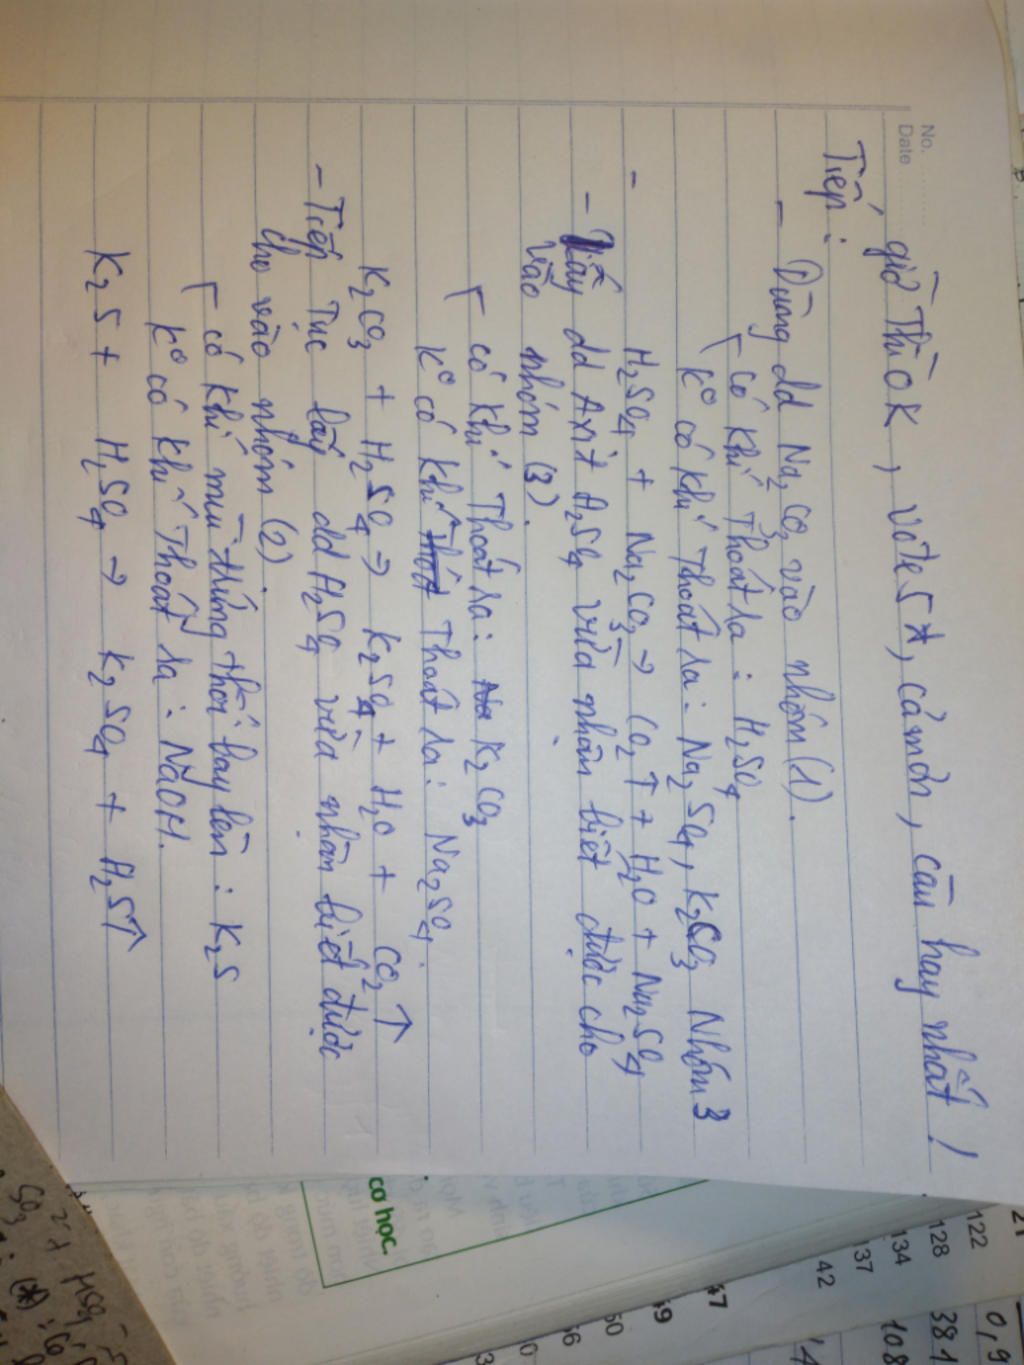 No.
Date
giờ thì OK, vote 5*, cảm ơn, câu hay nhất!
Tiếp:
- Dùng dd Na2CO3 vào nhóm (1).
có khí thoát ra: H2SO4
K° có khí thoát ra: Na2SO4, K2CO3 Nhóm 3
- H2SO4 + Na2CO3 → CO2↑ + H2O + Na2SO4
- Lấy dd Axit H2SO4 vừa nhận biết được cho
vào nhóm (3).
có khí thoát ra: K2CO3
K° có khí thoát ra: Na2SO4.
K2CO3 + H2SO4 → K2SO4 + H2O + CO2↑
- Tiếp tục lấy dd H2SO4 vừa nhận biết được
cho vào nhóm (2).
có khí mùi trứng thối bay lên: K2S
K° có khí thoát ra: NaOH.
K2S + H2SO4 → K2SO4 + H2S↑
cơ học.
122
128
134
137
42
47
49
50
56
0,9
381
108